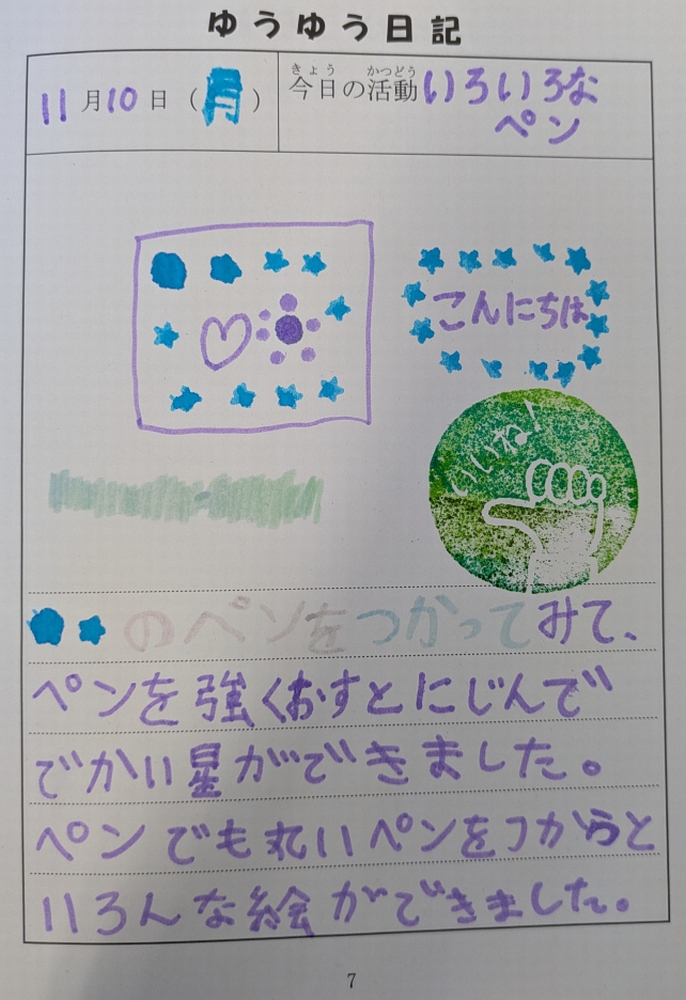 ゆうゆう日記
11月10日（月）
きょう かつどう
今日の活動 いろいろな
ペン
こんにちは
いいね！
のペンをつかってみて、
ペンを強くおすとにじんで
でかい星ができました。
ペンでも丸いペンをつからと
いろんな絵ができました。
7